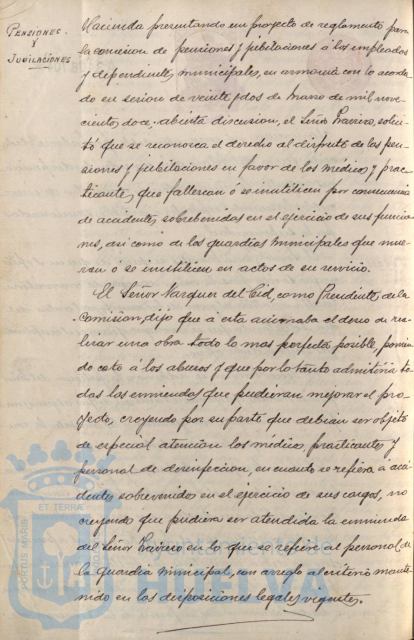 PENSIONES
Y
JUBILACIONES
Hacienda presentando un proyecto de reglamento para
la concesion de pensiones y jubilaciones á los empleados
y dependientes municipales, en armonia con lo acorda-
do en sesion de veintydos de Marzo de mil nove-
cientos doce; abierta discusion, el Señor solici-
tó que se reconosca el derecho al disfrute de las pen-
siones y jubilaciones en favor de los médicos y prac-
ticantes, que fallezcan ó se inutilicen por consecuencia
de accidentes sobrebenidos en el ejercicio de sus funcio-
nes, asi como de los guardias municipales que mue-
ran ó se inutilicen en actos de su servicio.
El Señor Vazquez del Cid, como Presidente de la
Comision, dijo que á esta animaba el deseo de rea-
lizar una obra todo lo mas perfecta posible, ponien-
do coto á los abusos y que por lo tanto admitiria to-
das las enmiendas que pudieran mejorar el pro-
yecto, creyendo por su parte que debian ser objeto
de especial atencion los médicos, practicantes y
personal de desinfeccion, en cuanto se refiera a acci-
dentes sobrevenidos en el ejercicio de sus cargos, no
creyendo que pudiera ser atendida la enmienda
del Señor en lo que se refiere al personal de
la guardia municipal, con arreglo al criterio mante-
nido en las disposiciones legales vigentes.
PORTUS MARIS
ET TERRÆ
HUELVA